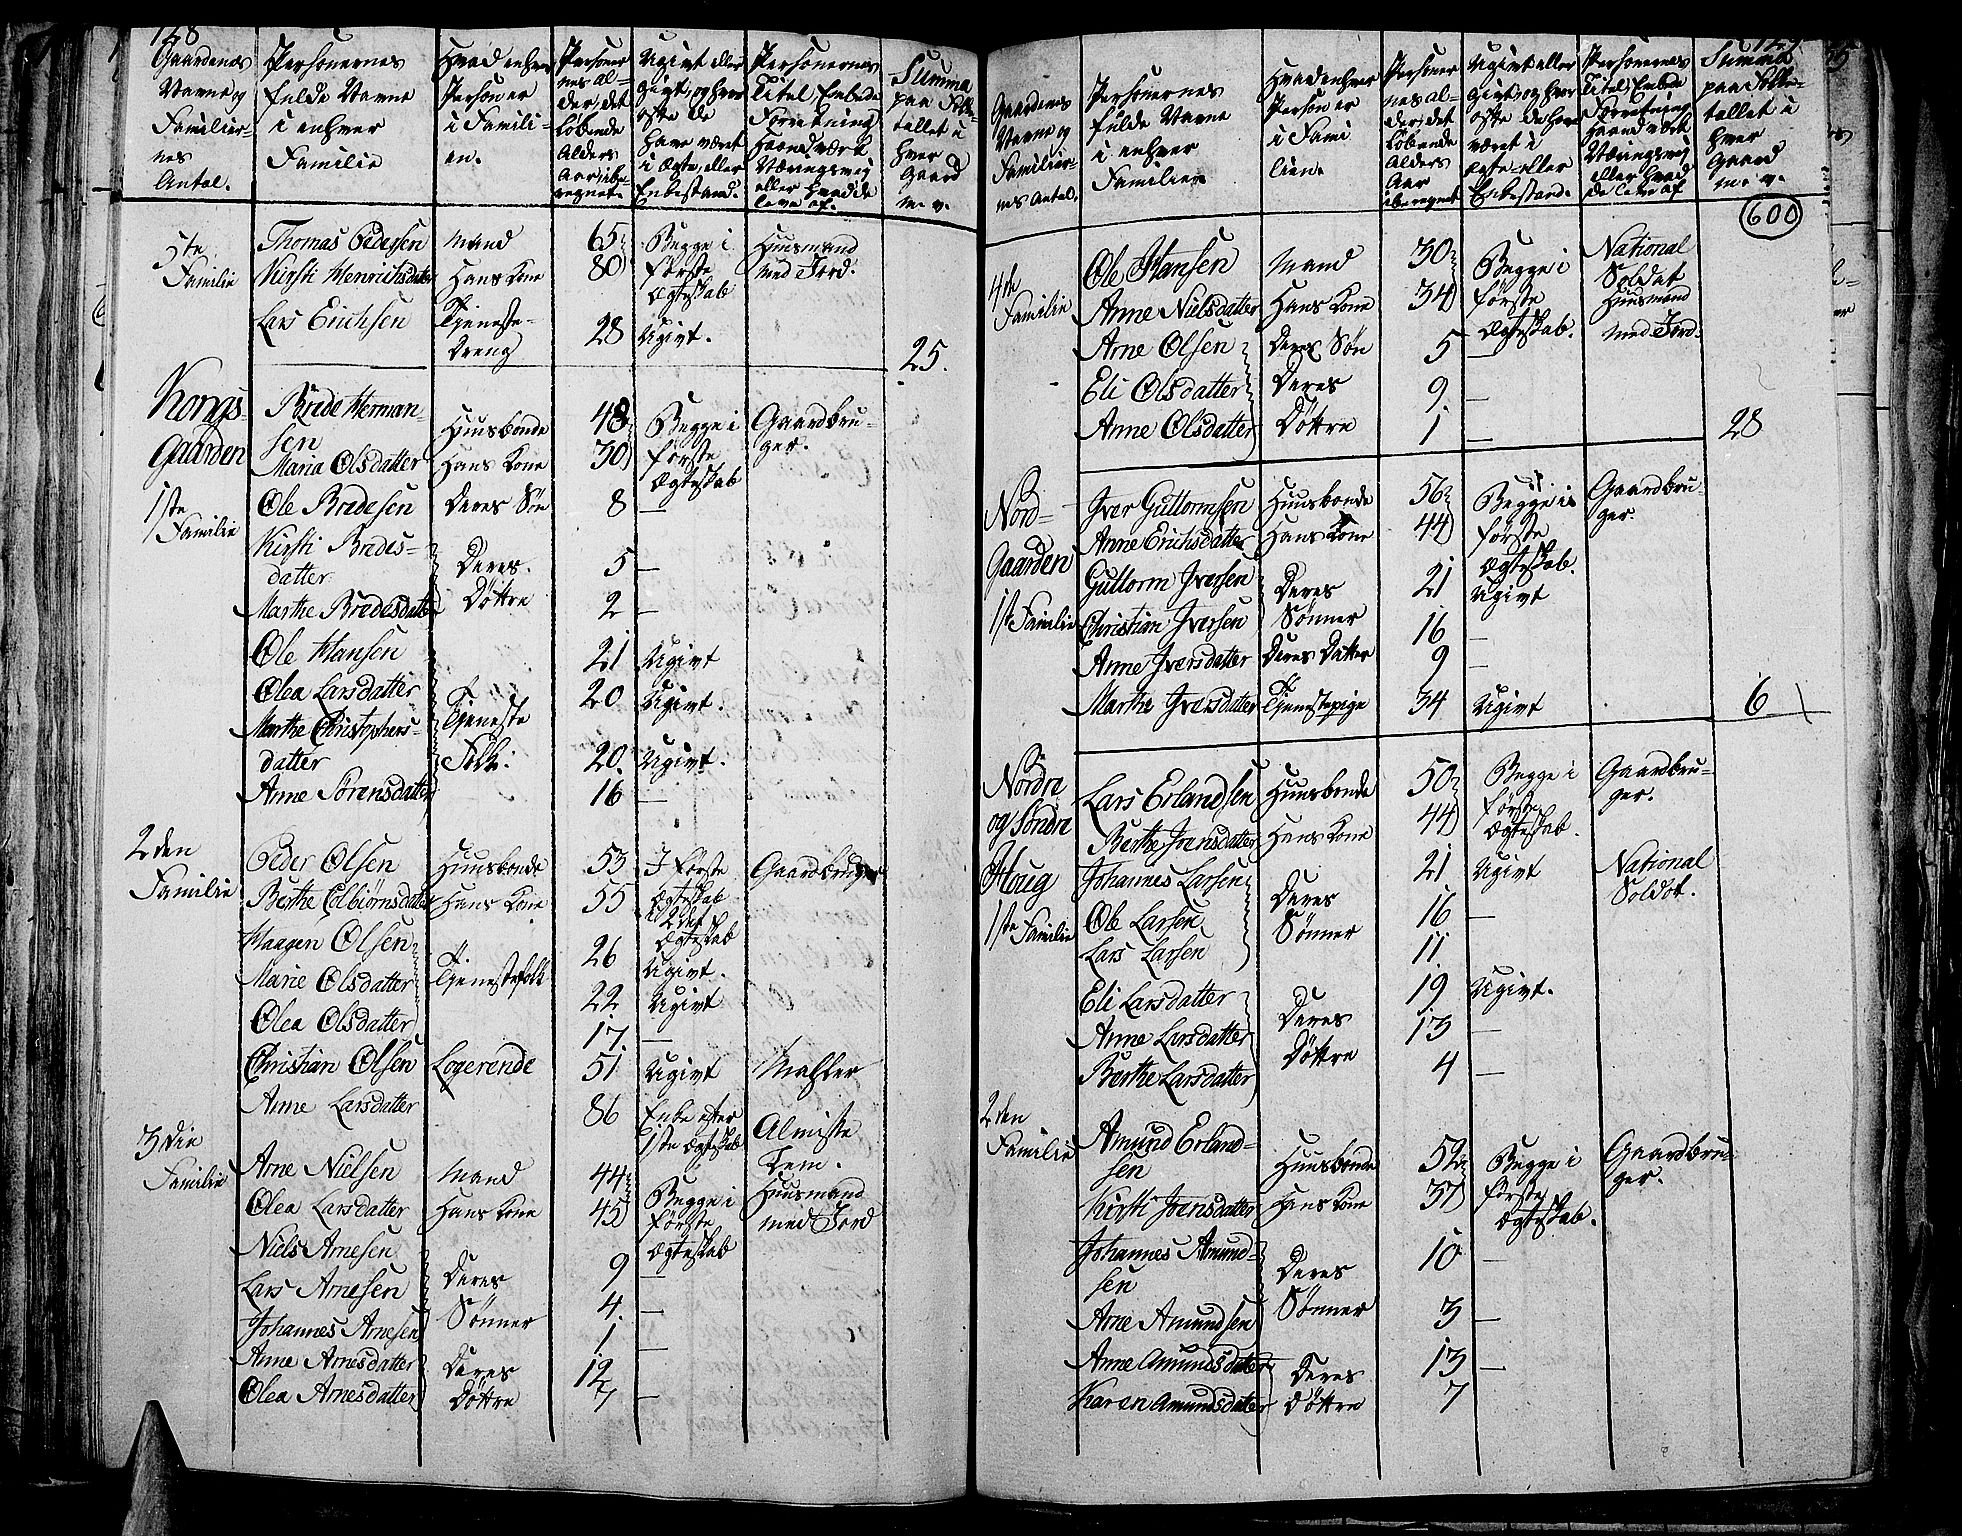 128
Gaardenes Navne og Familiernes Antal.
Personernes fulde Navne i enhver Familie
Hvad enhver Person er i Familien.
Personernes Alder, det løbende Alders Aar iberegnet.
Ugivt eller givt, og hvor ofte de have været i Ægte- eller Enkestand.
Personernes Titel, Embede Forretning Haandværk Næringsvej eller hvad de leve af.
Summa paa Folketallet i hver Gaard m. v.
5te Familie
Thomas Pedersen Mand 65 Begge i første Ægteskab Huusmand med Jord.
Kirsti Henrichsdatter Hans Kone 80
Lars Erichsen Tjeneste-Dreng 28 Ugivt. 25.
Kongs-Gaarden
1ste Familie
Brede Hermansen Huusbonde 48 Begge i første Ægteskab Gaardbruger.
Maria Olsdatter Hans Kone 30
Ole Bredesen Deres Søn 8 —
Kirsti Bredesdatter Deres Døttre 5 —
Marthe Bredesdatter 2 —
Ole Hansen Tjeneste Folk. 21 Ugivt
Olea Larsdatter 20 Ugivt.
Marthe Christophersdatter 20. Ugivt.
Anne Sørensdatter 16 —
2den Familie
Peder Olsen Huusbonde 53 I første Ægteskab Gaardbruger
Berthe Colbiørnsdatter Hans Kone 55 i 2det Ægteskab
Haagen Olsen Tjenestefolk 26 Ugivt.
Marie Olsdatter 22 Ugivt
Olea Olsdatter 17. —
Christian Olsen Logerende 51 Ugivt Mahler
Anne Larsdatter 86 Enke efter 1ste Ægteskab Almisse Lem.
3die Familie
Arne Nielsen Mand 44 Begge i første Ægteskab Huusmand med Jord
Olea Larsdatter Hans Kone 45
Niels Arnesen Deres Sønner 9 —
Lars Arnesen 4. —
Johannes Arnesen 1 —
Anne Arnesdatter Deres Døttre 12
Olea Arnesdatter 7 —
129
Gaardenes Navne og Familiernes Antal.
Personernes fulde Navne i enhver Familie
Hvad enhver Person er i Familien.
Personernes Alder, det løbende Alders Aar iberegnet
Ugivt eller givt, og hvor ofte de have været i Ægte- eller Enkestand.
Personernes Titel, Embede Forretning Haandværk Næringsvej eller hvad de leve af
Summa paa Folketallet i hver Gaard m. v.
600
4de Familie
Ole Hansen Mand 30 Begge i første Ægteskab. National Soldat Huusmand med Jord.
Anne Nielsdatter Hans Kone 34
Arne Olsen Deres Søn 5 —
Eli Olsdatter Deres Døttre 9 —
Anne Olsdatter 1 — 28
Nord-Gaarden
1ste Familie
Iver Guttormsen Huusbonde 56 Begge i første Ægteskab. Gaardbruger.
Anne Erichsdatter Hans Kone 44
Guttorm Iversen Deres Sønner 21 Ugivt
Christian Iversen 16 —
Anne Iversdatter Deres Datter 9 —
Marthe Iversdatter Tjenestepige 34 Ugivt 6
Nordre og Søndre Houg
1ste Familie
Lars Erlandsen Huusbonde 50 Begge i første Ægteskab. Gaardbruger.
Berthe Iversdatter Hans Kone 44
Johannes Larsen Deres Sønner 21 Ugivt National Soldat.
Ole Larsen 16 —
Lars Larsen 11.
Eli Larsdatter Deres Døttre 19 Ugivt.
Anne Larsdatter 13 —
Berthe Larsdatter 4 —
2den Familie
Amund Erlandsen Huusbonde 52 Begge i første Ægteskab. Gaardbruger.
Kirsti Iversdatter Hans Kone 37
Johannes Amundsen Deres Sønner 10 —
Arne Amundsen 3 —
Anne Amundsdatter Deres Døttre 13 —
Karen Amundsdatter 7